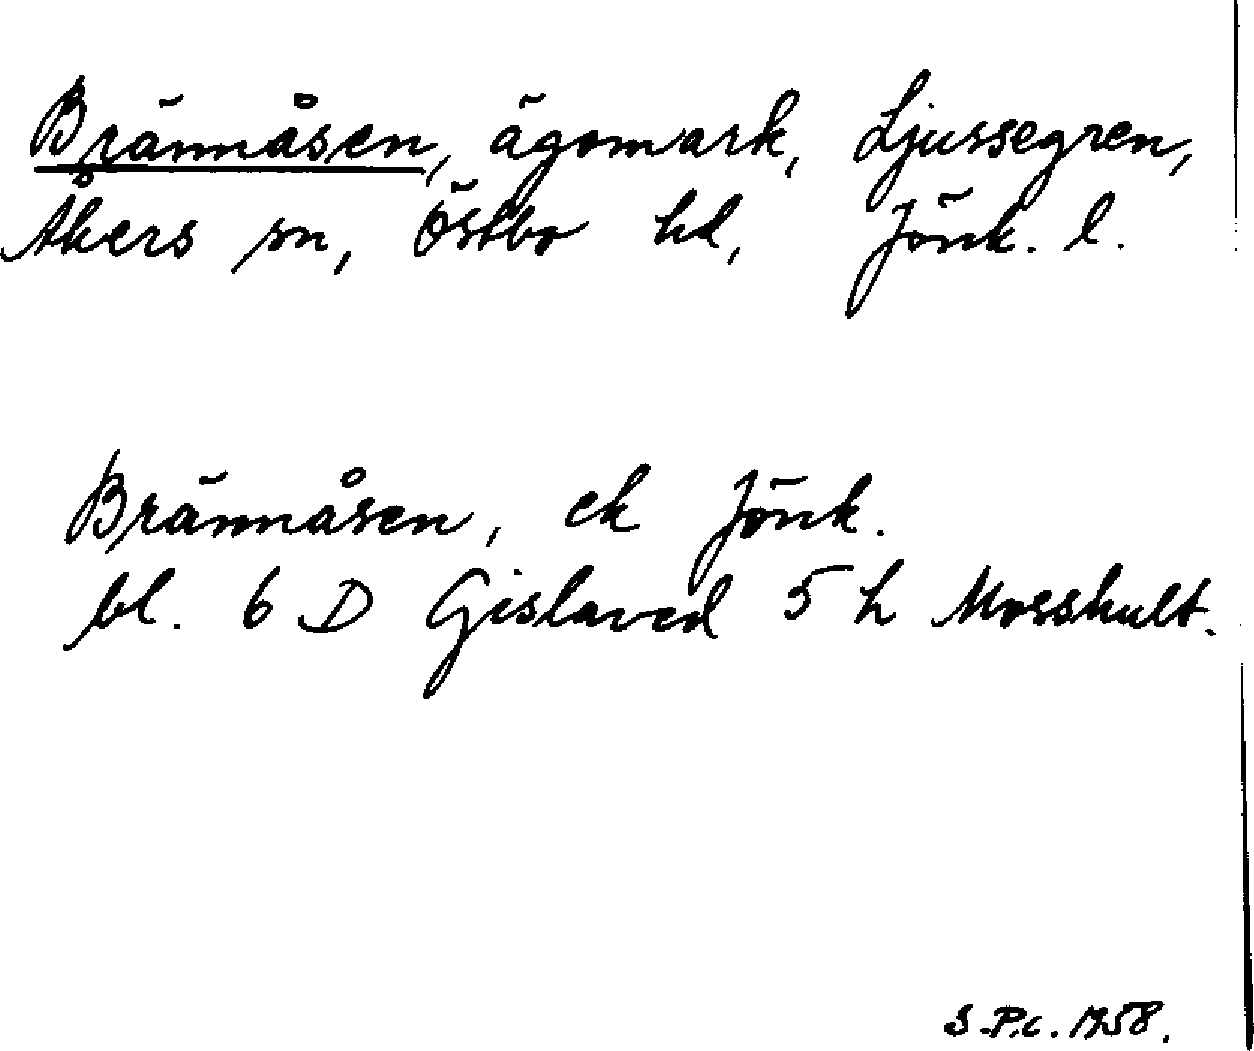 Brännåsen, ägomark, Ljussegren,
Åkers sn, Östbo hd, Jönk. l.
Brännåsen, ek Jönk.
bl. 6 D Gislaved 5 h Mosshult.
S.P.c. 1958.